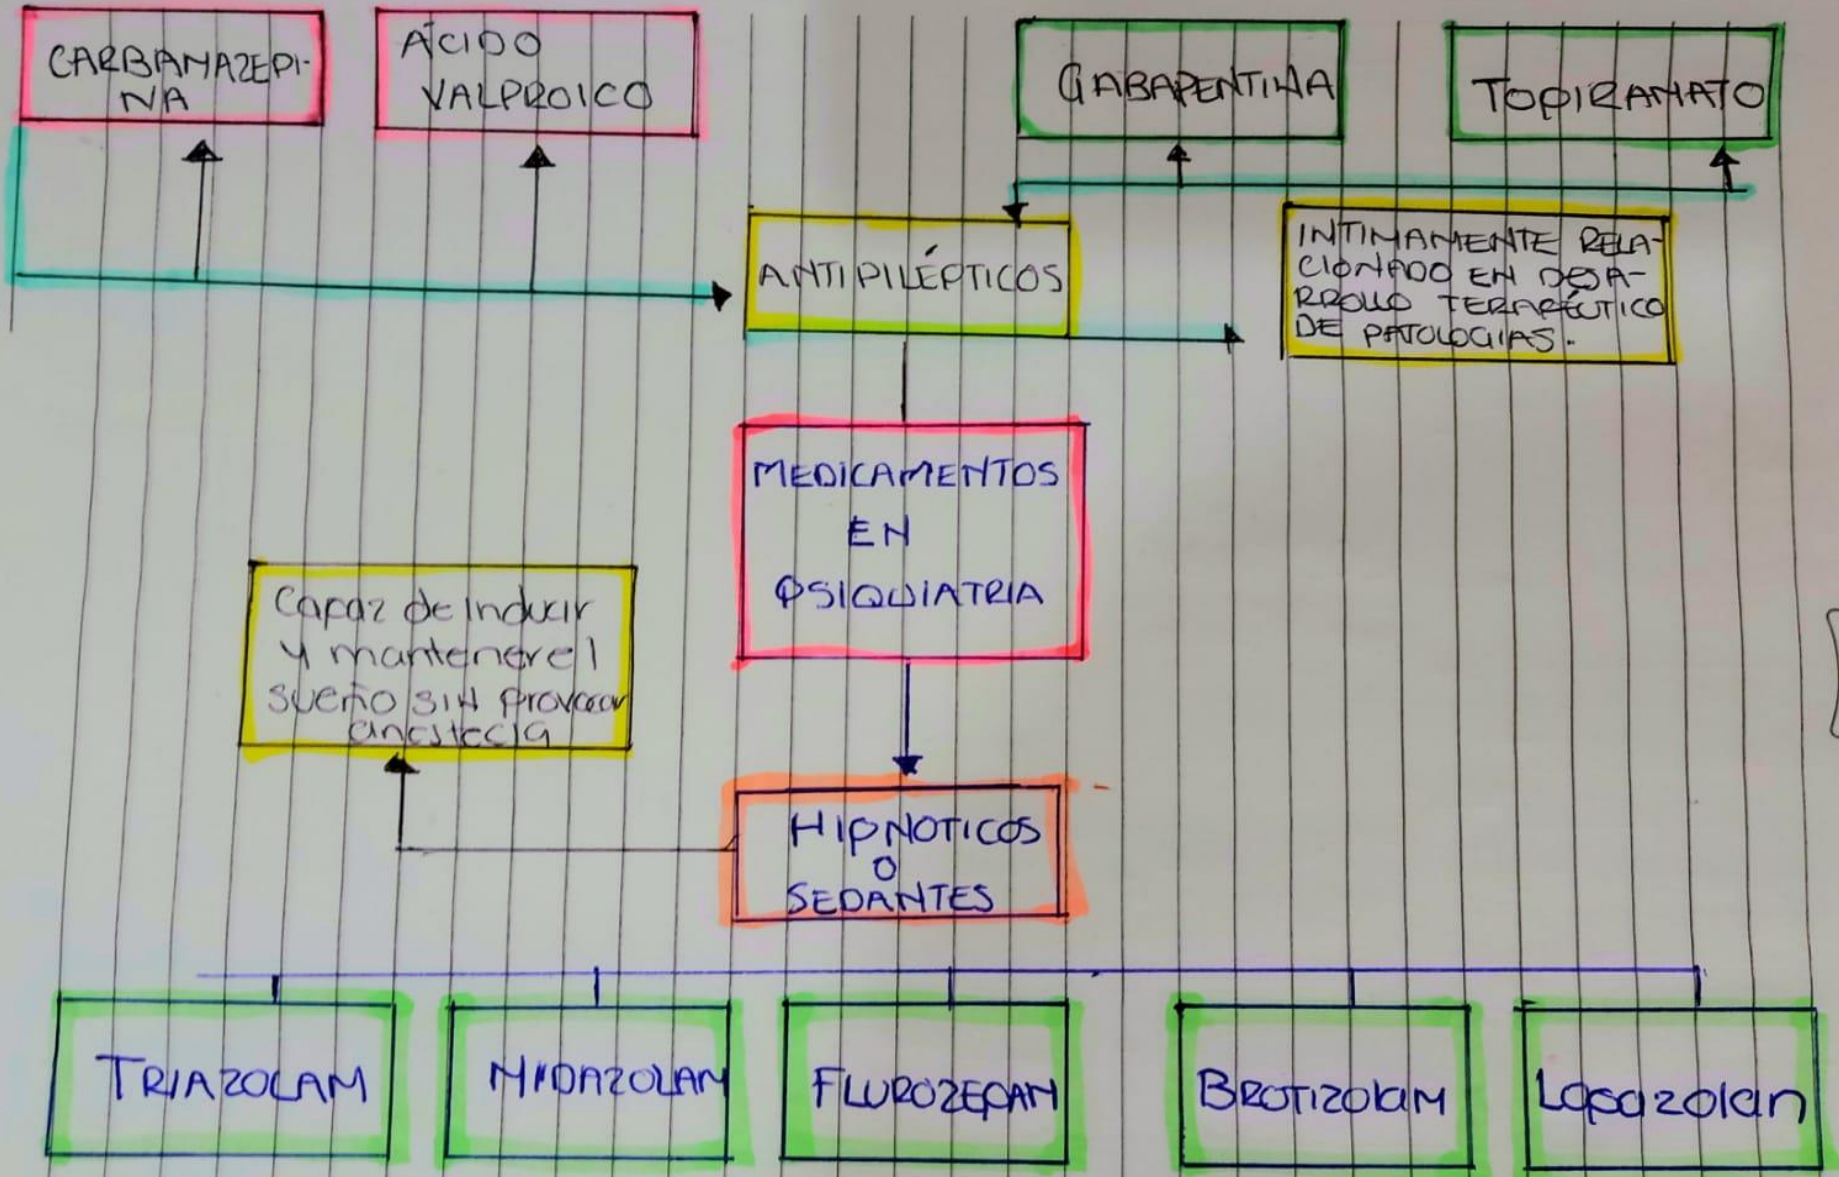 CARBAMAZEPI-
NA
ÁCIDO
VALPROICO
GABAPENTINA
TOPIRAMATO
ANTIPILÉPTICOS
INTIMAMENTE RELA-
CIONADO EN DESA-
RROLLO TERAPÉUTICO
DE PATOLOGIAS.
MEDICAMENTOS
EN
PSIQUIATRIA
Capaz de inducir
y mantener el
sueño sin provocar
anestecia
HIPNOTICOS
O
SEDANTES
TRIAZOLAM
MIDAZOLAM
FLUROZEPAM
BROTIZOLAM
Lopazolan